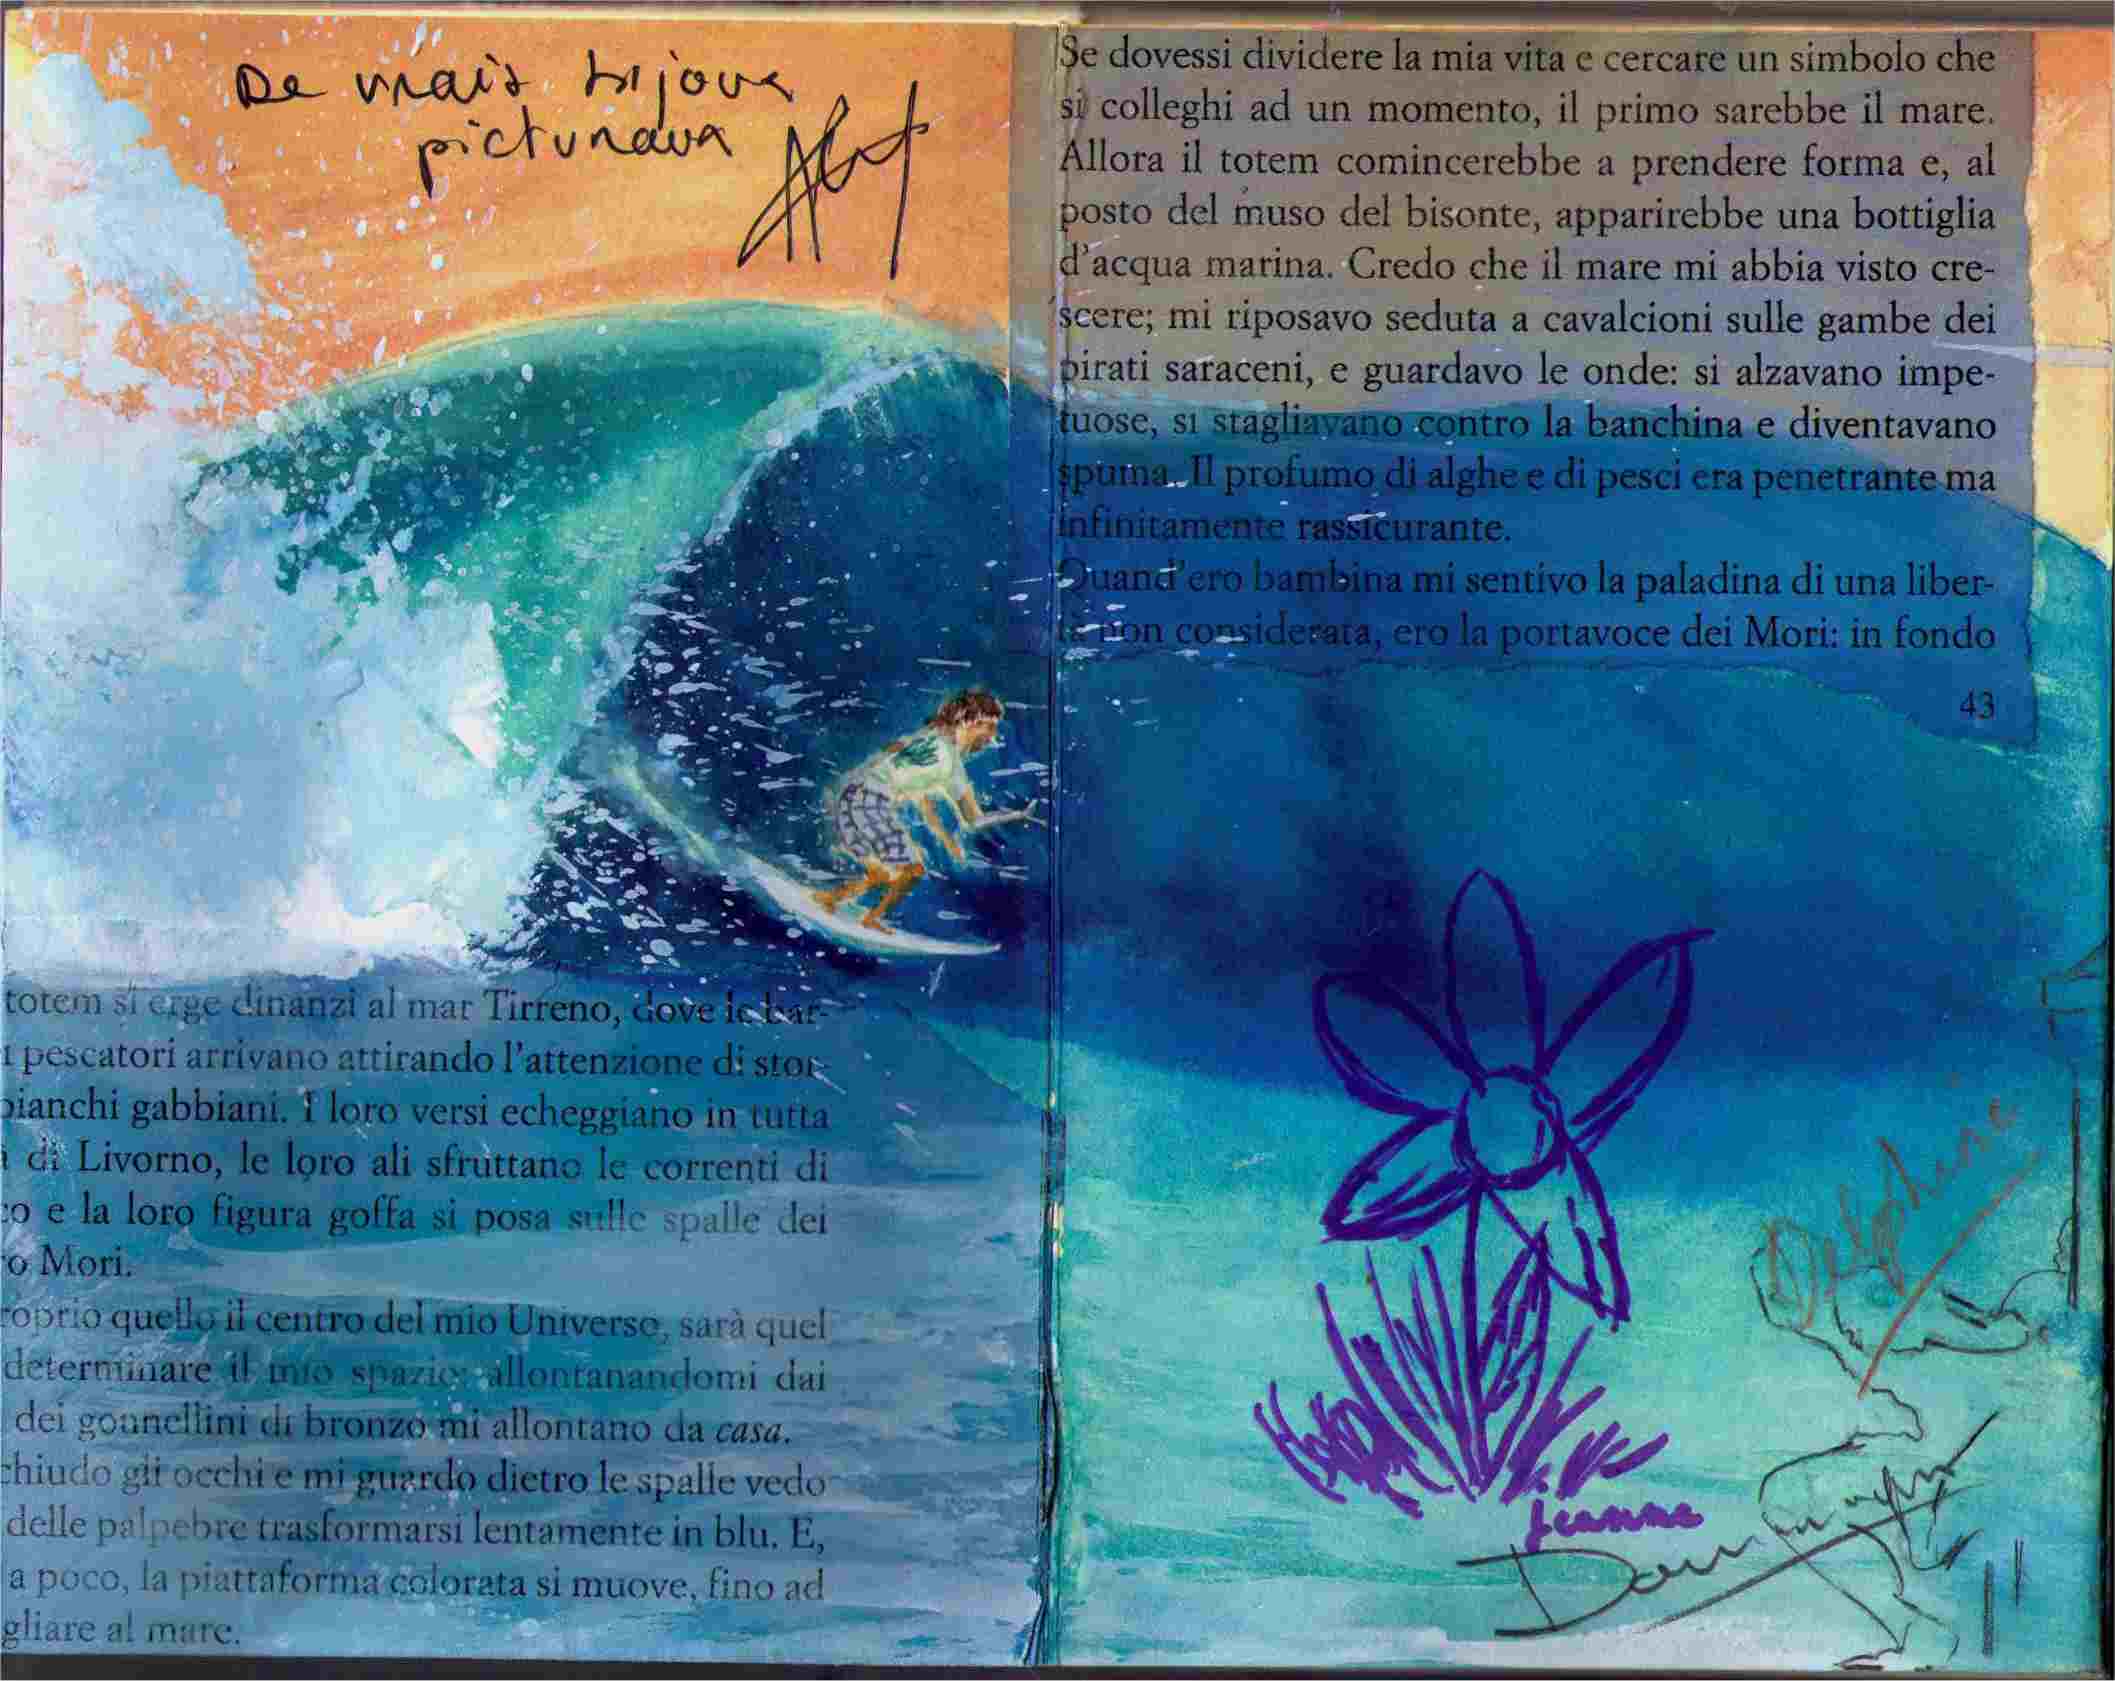 De
Se dovessi dividere la mia vita e cercare un simbolo che
si colleghi ad un momento, il primo sarebbe il mare.
Allora il totem comincerebbe a prendere forma e, al
posto del muso del bisonte, apparirebbe una bottiglia
d'acqua marina. Credo che il mare mi abbia visto cre-
scere; mi riposavo seduta a cavalcioni sulle gambe dei
pirati saraceni, e guardavo le onde: si alzavano impe-
tuose, si stagliavano contro la banchina e diventavano
spuma. Il profumo di alghe e di pesci era penetrante ma
infinitamente rassicurante.
Quand'ero bambina mi sentivo la paladina di una liber-
tà non considerata, ero la portavoce dei Mori: in fondo
43
totem si erge dinanzi al mar Tirreno, dove le bar-
i pescatori arrivano attirando l'attenzione di stor-
bianchi gabbiani. I loro versi echeggiano in tutta
di Livorno, le loro ali sfruttano le correnti di
co e la loro figura goffa si posa sulle spalle dei
o Mori.
roprio quello il centro del mio Universo, sarà quel
determinare il mio spazio: allontanandomi dai
dei gonnellini di bronzo mi allontano da casa.
chiudo gli occhi e mi guardo dietro le spalle vedo
delle palpebre trasformarsi lentamente in blu. E,
a poco, la piattaforma colorata si muove, fino ad
gliare al mare.
Delphine
Jeanne